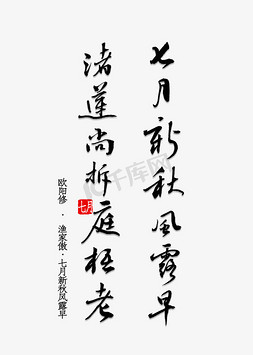 七月新秋风露早
渚莲尚拆庭梧老
七月
欧阳修·渔家傲·七月新秋风露早